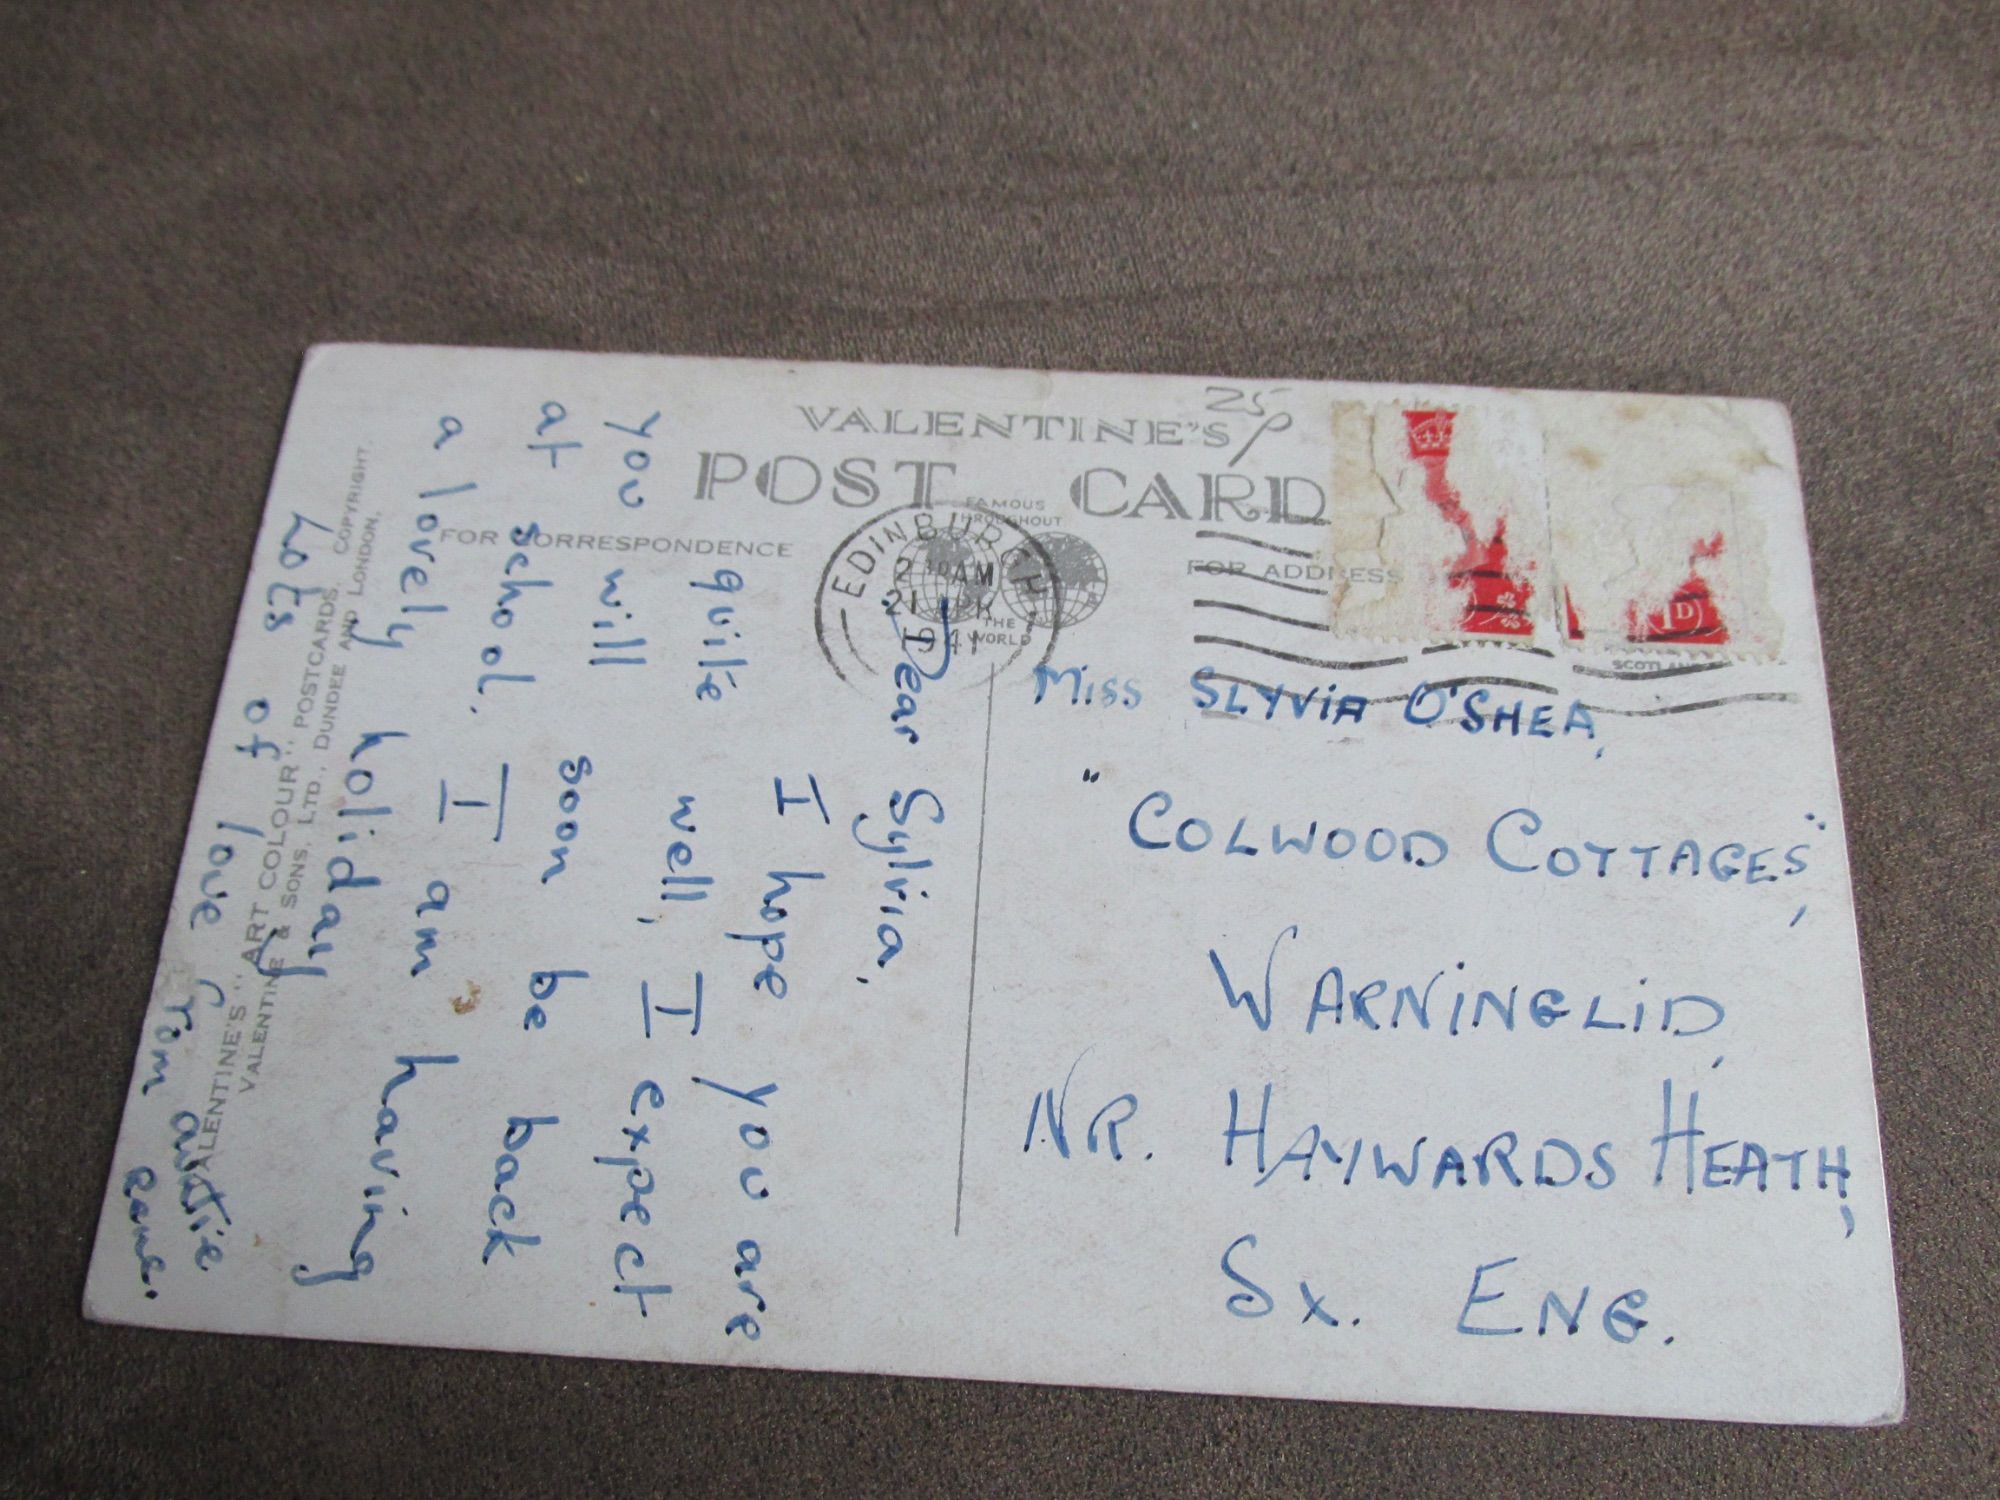 VALENTINE'S
25
POST CARD
FAMOUS
THROUGHOUT
THE
WORLD
FOR CORRESPONDENCE
FOR ADDRESS
EDINBURGH
2 30 AM
21
1941
1D
SCOTLAND
Dear Sylvia,
I hope you are
quite well, I expect
you will soon be back
at school. I am having
a lovely holiday
Lots of love from auntie
Miss SLYVIA O'SHEA,
"COLWOOD COTTAGES",
WARNINGLID,
NR. HAYWARDS HEATH,
SX. ENG.
VALENTINE'S "ART COLOUR" POSTCARDS. COPYRIGHT.
VALENTINE & SONS, LTD., DUNDEE AND LONDON.